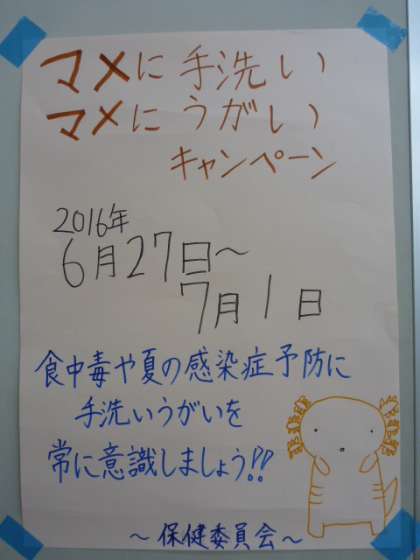 マメに手洗い
マメにうがい
キャンペーン
2016年
6月27日～
7月1日
食中毒や夏の感染症予防に
手洗いうがいを
常に意識しましょう!!
～保健委員会～